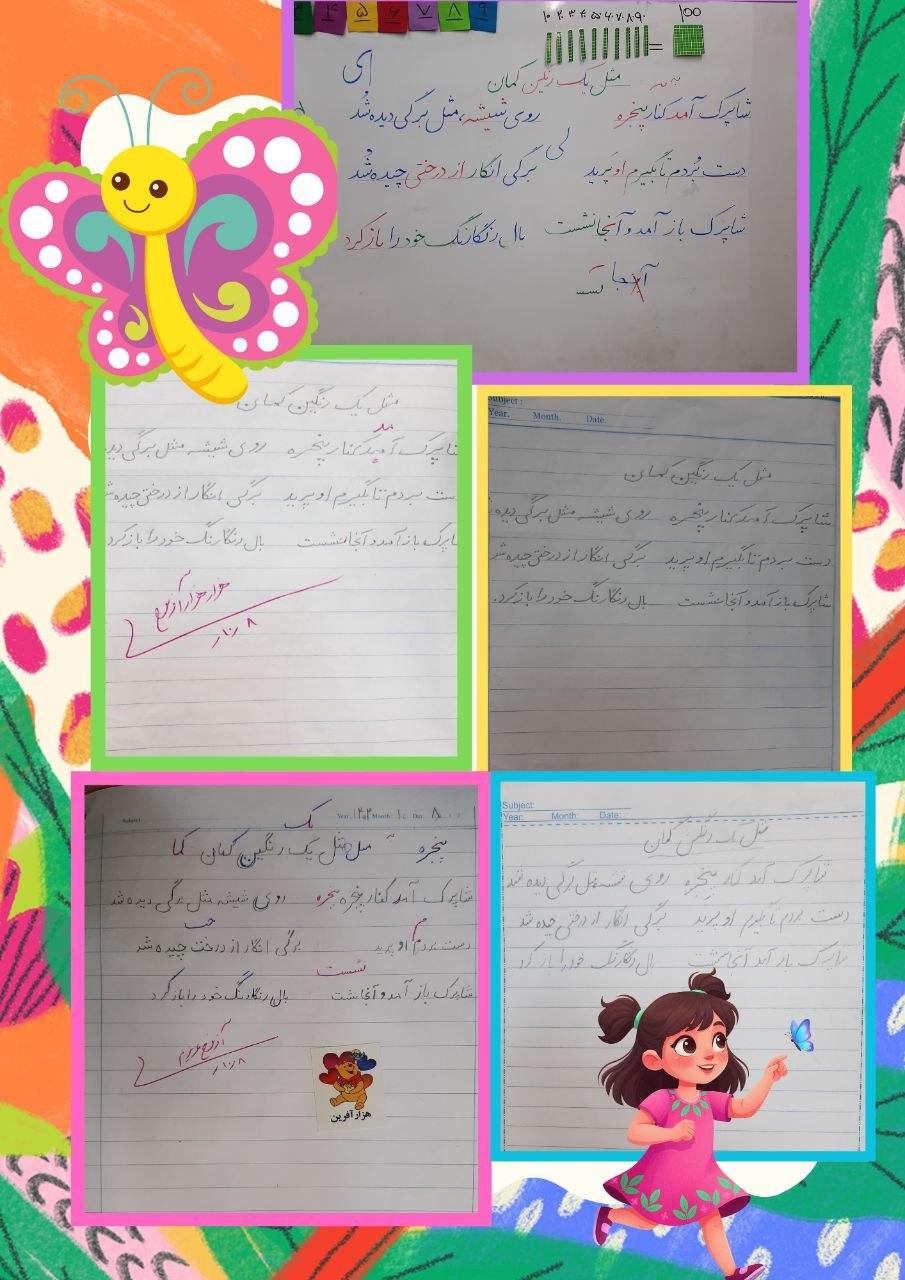 ۴ ۵ ۶ ۷ ۸ ۹
۱۰ ۲۰ ۳۰ ۴۰ ۵۰ ۶۰ ۷۰ ۸۰ ۹۰ = ۱۰۰
مثل یک رنگین کمان
اِی
شاپرک آمد کنار پنجره روی شیشه، مثل برگی دیده شُد
لی
دست بُردم تا بگیرم او پَرید برگی انگار از درختی چیده شُد
شاپرک باز آمد و آنجا نشست بال رنگارنگ خود را باز کرد
مثل یک رنگین کمان
مد
شاپرک آمد کنار پنجره روی شیشه مثل برگی دید
ست بردم تا بگیرم او پرید برگی انگار از درختی چیده ش
شاپرک باز آمد و آنجا نشست بال رنگارنگ خود را باز کرد
هزار هزار آفرین
۸/۱۰
Subject:
Year. Month. Date.
مثل یک رنگین کمان
شاپرک آمد کنار پنجره روی شیشه مثل برگی دیده
دست بردم تا بگیرم او پرید برگی انگار از درختی چیده ش
شاپرک باز آمد و آنجا نشست بال رنگارنگ خود را باز کرد.
Subject:
Year. Month. Date.
پنجره مثل یک رنگین کمان کما
شاپرک آمد کنار پنجره پنجره روی شیشه مثل برگی دیده شد
دست بردم او پرید برگی انگار از درخت چیده شد
نشست
شاپرک باز آمد و آنجا نشت بال رنگارنگ خود را باز کرد
آفرین عزیزم
۸/۱۰
هزار آفرین
Subject:
Year: Month: Date:
مثل یک رنگین کمان
شاپرک آمد کنار پنجره روی شیشه مثل برگی دیده شد
دست بردم تا بگیرم او پرید برگی انگار از درختی چیده شد
شاپرک باز آمد آنجا نشست بال رنگارنگ خود را باز کرد